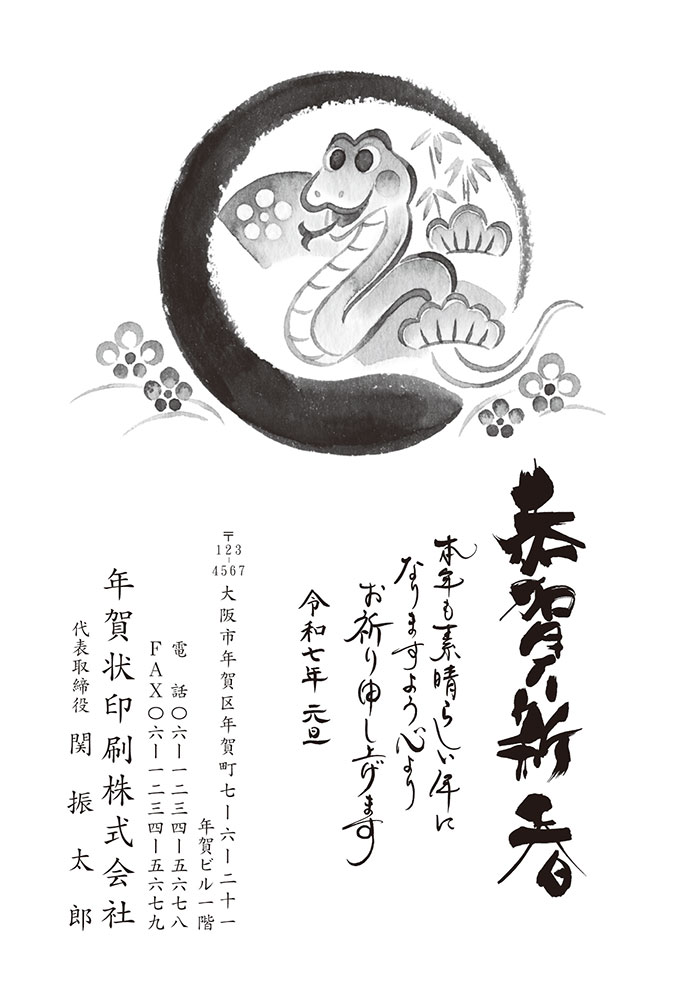 恭賀新春
本年も素晴らしい年に
なりますよう心より
お祈り申し上げます
令和七年 元旦
〒123-4567 大阪市年賀区年賀町七ー六ー二十一
年賀ビル一階
電話〇六ー一二三四ー五六七八
FAX〇六ー一二三四ー五六七九
年賀状印刷株式会社
代表取締役 関振太郎